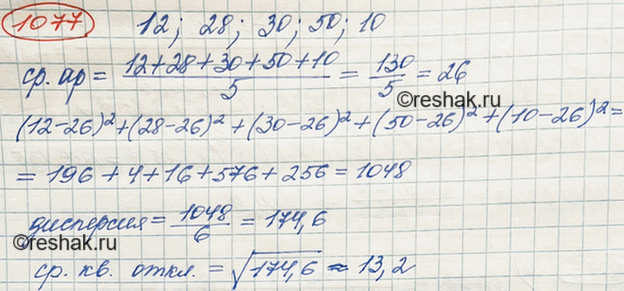 1077 12; 28; 30; 50; 10
ср. ар = (12+28+30+50+10)/5 = 130/5 = 26
©reshak.ru
(12-26)²+(28-26)²+(30-26)²+(50-26)²+(10-26)²=
= 196+4+16+576+256 = 1048
дисперсия = 1048/6 = 174,6
©reshak.ru
ср. кв. откл. = √174,6 ≈ 13,2